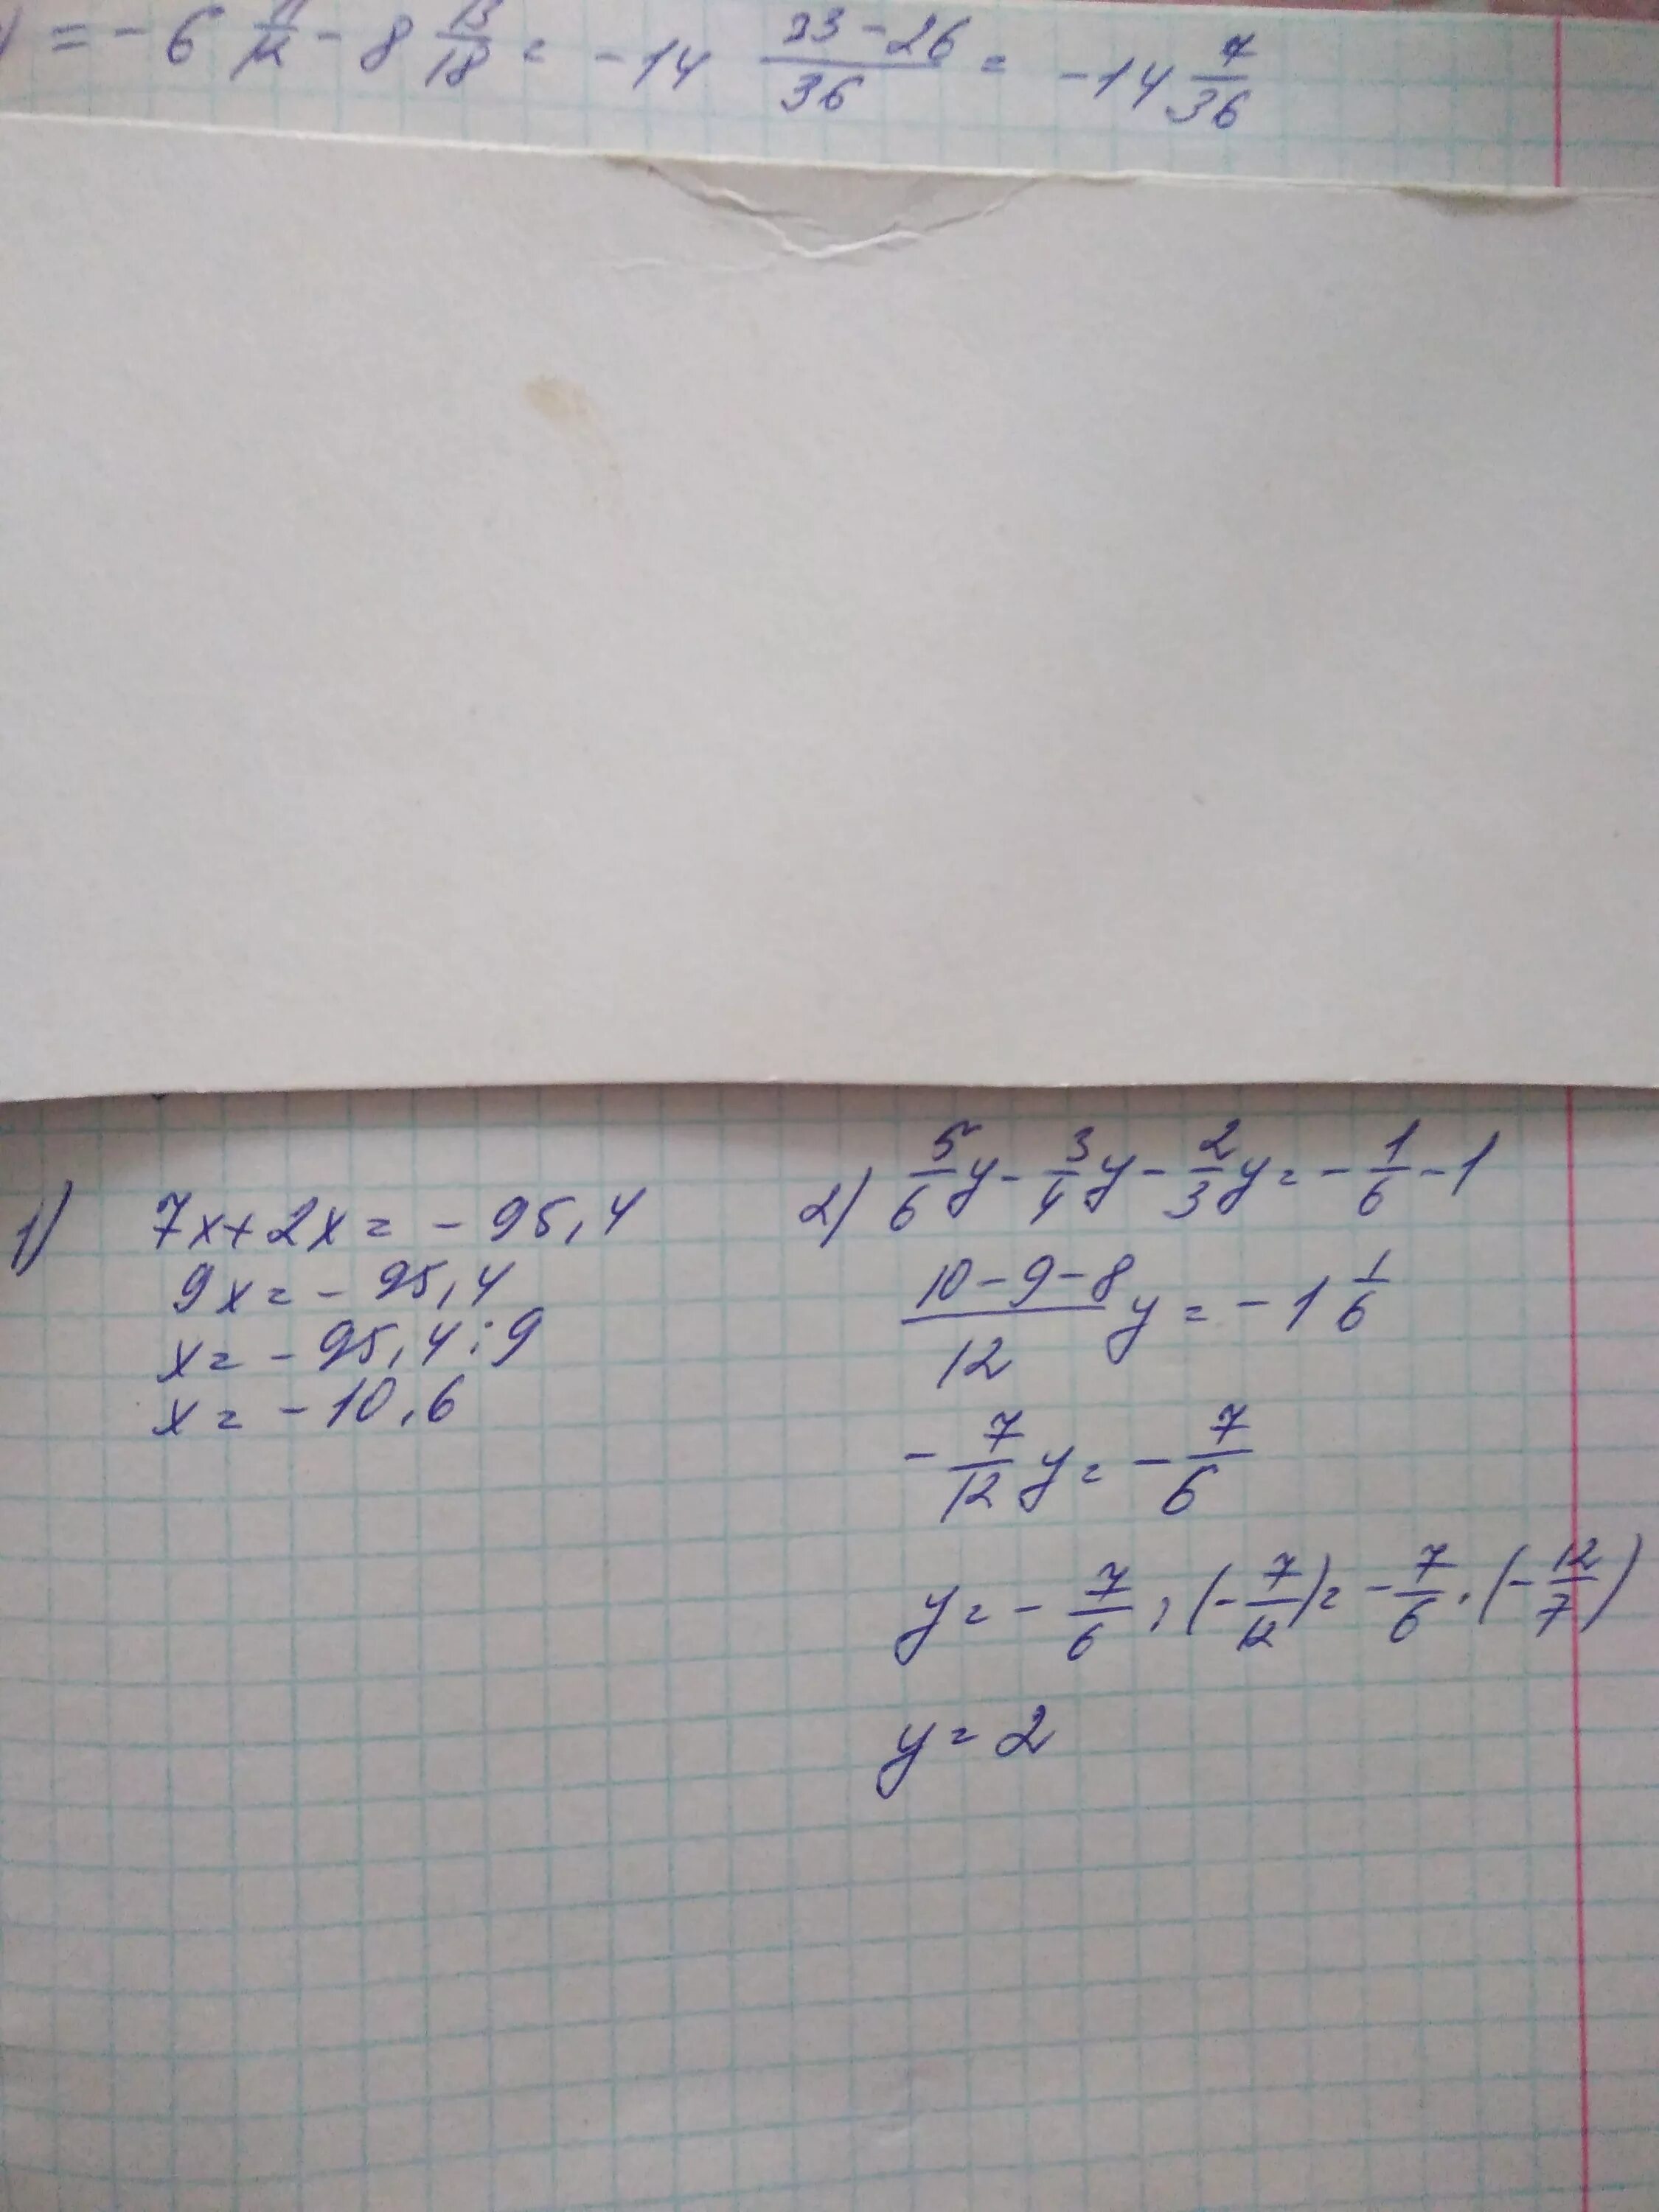 = - 6 11/12 - 8 13/18 = -14 33-26/36 = -14 7/36
1) 7x+2x = - 95,4
9x = - 95,4
x = - 95,4 : 9
x = - 10,6
2) 5/6 y - 3/4 y - 2/3 y = - 1/6 - 1
10-9-8/12 y = - 1 1/6
- 7/12 y = - 7/6
y = - 7/6 : (- 7/12) = - 7/6 · (- 12/7)
y = 2